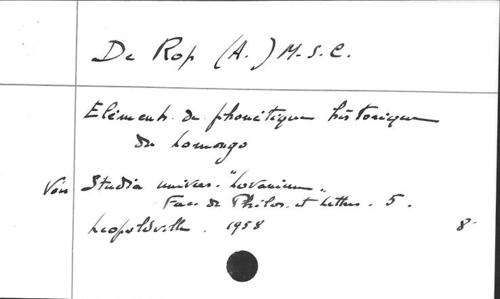 De Rop (A.) M.S.C.
Eléments de phonétique historique
du Lomongo
Voir Studia univers. "Lovanium"
Fac. de Philos. et Lettres. 5.
Leopoldville. 1958 8°